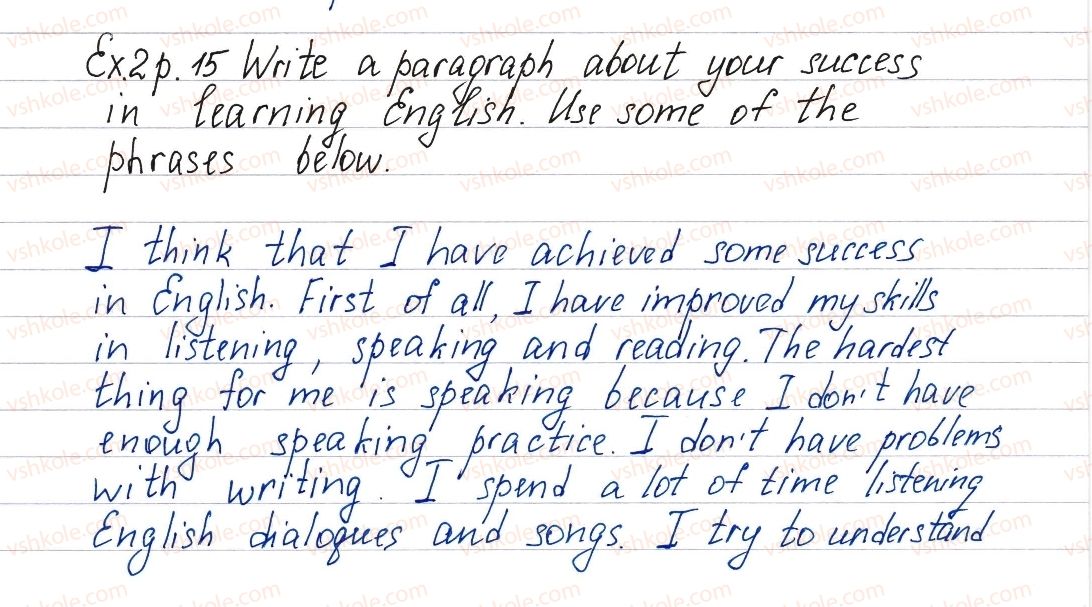 Ex.2 p. 15 Write a paragraph about your success
in learning English. Use some of the
phrases below.
I think that I have achieved some success
in English. First of all, I have improved my skills
in listening, speaking and reading. The hardest
thing for me is speaking because I don't have
enough speaking practice. I don't have problems
with writing. I spend a lot of time listening
English dialogues and songs. I try to understand
vshkole.com